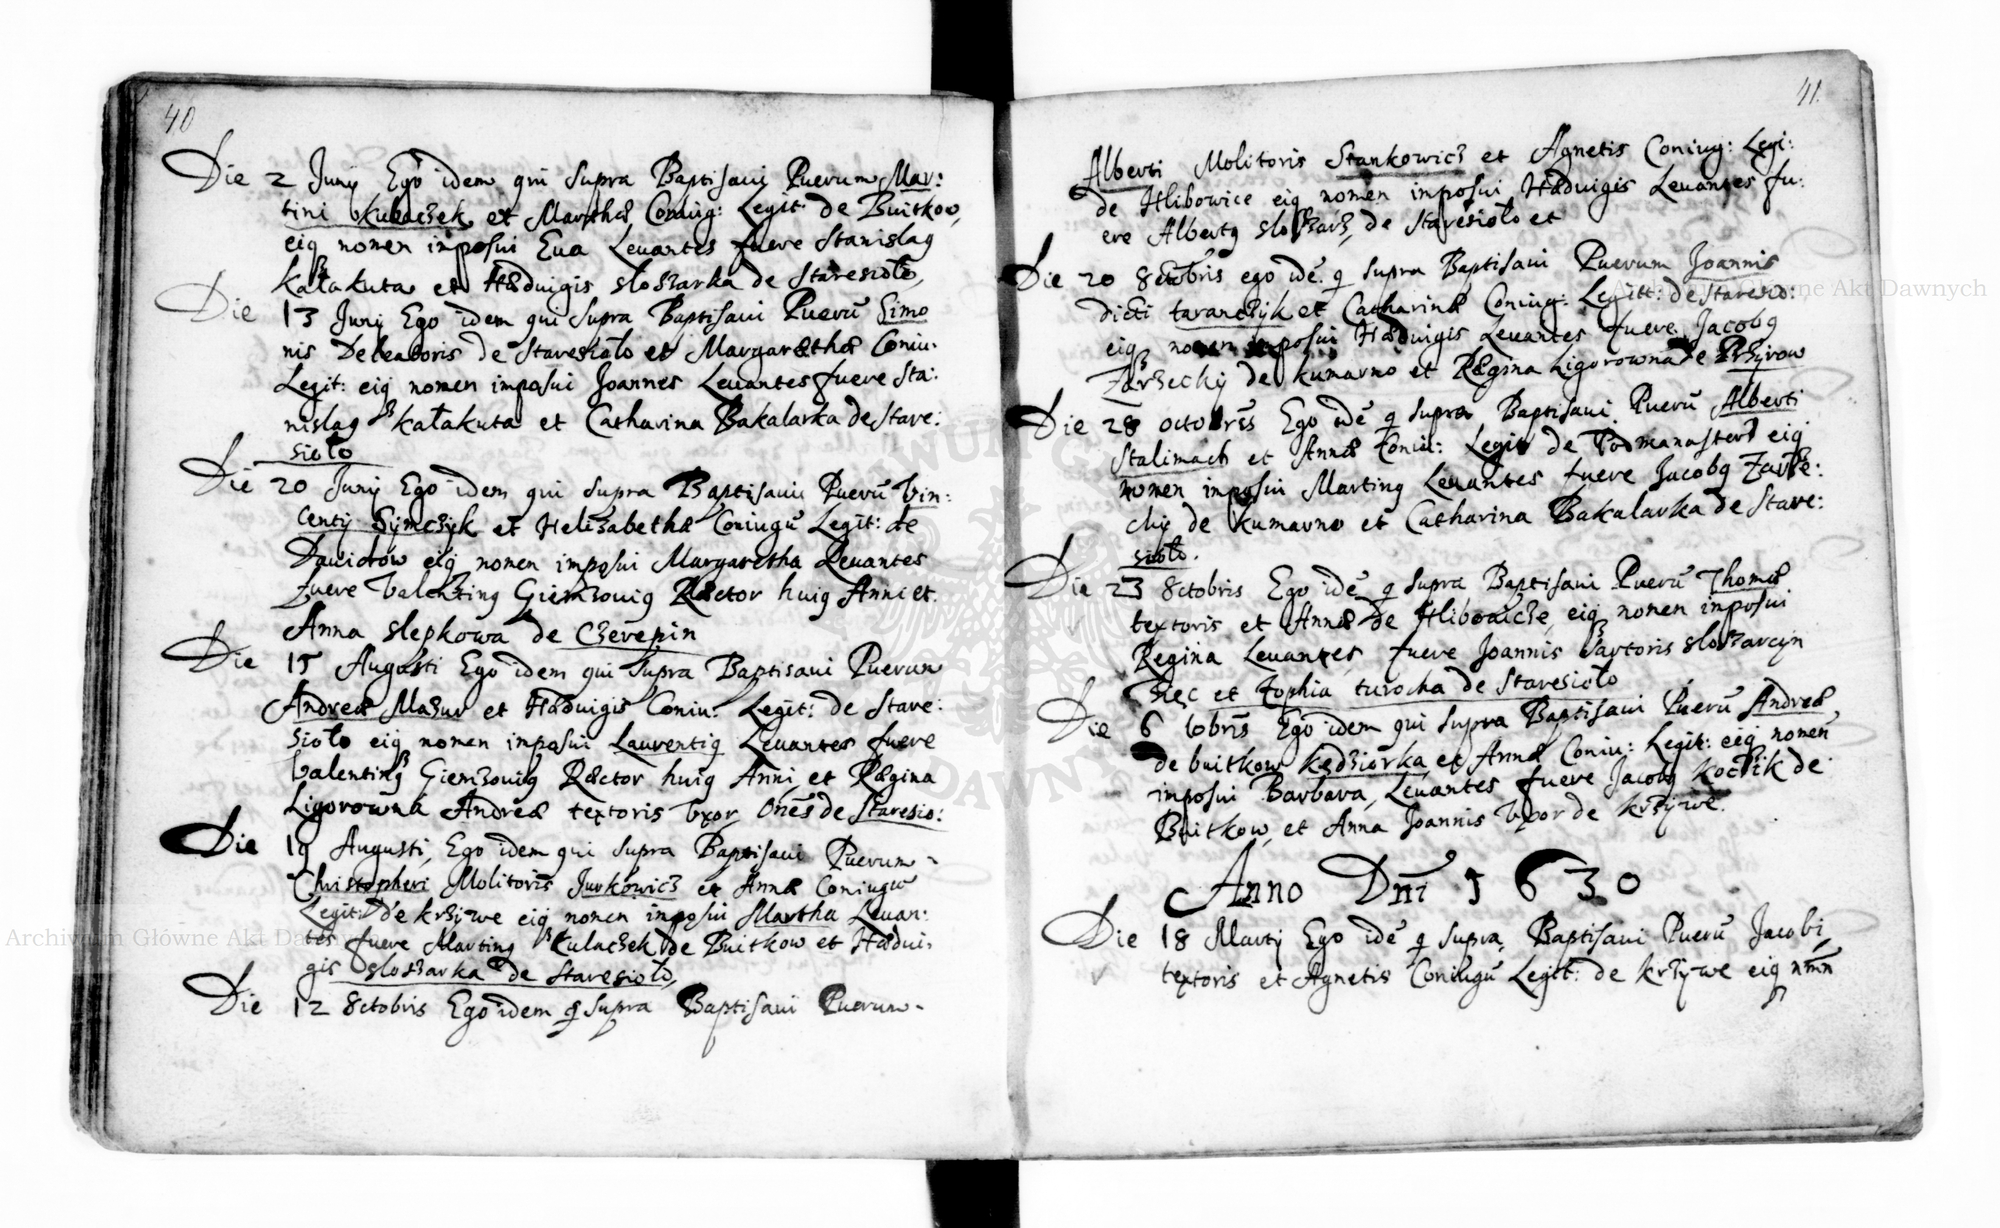 40
Die 2 Junij Ego idem qui supra Baptisaui Puerum Mar:
tini Kulaczek et Marthæ Coniug: Legit: de Buitkow,
eiq nomen imposui Eua Leuantes fuere Stanislaq
Kałakuta et Hædvigis sloszarka de Staresioło,
Die 13 Junij Ego idem qui supra Baptisaui Puerū Simo
nis de Staresioło et Margarethæ Coniu:
Legit: eiq nomen imposui Joannes Leuantes fuere Sta:
nislaq Kałakuta et Catharina Bakalarka de Stare:
sioło
Die 20 Junij Ego idem qui supra Baptisaui Puerū Vin:
centij Symczyk et Helizabethæ Coniugū Legit: de
Dauidow eiq nomen imposui Margaretha Leuantes
fuere Valentinq Giemzouiq Ræctor huiq Anni et
Anna slepkowa de Czerepin
Die 15 Augusti Ego idem qui supra Baptisaui Puerum
Andreæ Mazur et Hæduigis Coniu: Legit: de Stare:
sioło eiq nomen imposui Laurentiq Leuantes fuere
Valentinq Giemzouiq Ræctor huiq Anni, et Rægina
Ligorowna Andreæ textoris Vxor Oñes de Staresio:
Die 19 Augusti, Ego idem qui supra Baptisaui Puerum
Christopheri Molitoris Jurkowicz et Annæ Coniugū
Legit: de Krziwe eiq nomen imposui Martha Leuan:
tes fuere Martinq Kulaczek de Buitkow et Hædui:
gis sloszarka de Staresioło,
Die 12 8ctobris Ego idem q supra Baptisaui Puerum
41
Alberti Molitoris Stankowicz et Agnetis Coniug: Legi:
de Hlibowice eiq nomen imposui Hæduigis Leuantes fu:
ere Albertq slosarz, de Staresioło et
Die 20 8ctobris ego idē q supra Baptisaui Puerum Joannis
dicti taranczyk et Catharinæ Coniug: Legitt: de Staresio:
eiq nomen imposui Hæduigis Leuantes fuere Jacobq
Zarzechij de Kumarno et Rægina Ligorowna de Przyrow
Die 28 octobris Ego idē q supra Baptisaui Puerū Alberti
Stalimach et Annæ Coniu: Legit de Podmanaster eiq
nomen imposui Martinq Leuantes fuere Jacobq Zarze:
chij de Kumarno et Catharina Bakalarka de Stare:
sioło.
Die 23 8ctobris Ego idē q supra Baptisaui Puerū Thomæ
textoris et Annæ de Hlibowicze, eiq nomen imposui
Regina Leuantes fuere Joannis Sartoris sloszarcyn
zięc et Zophia turocha de Staresioło
Die 6 10bris Ego idem qui supra Baptisaui Puerū Andreæ,
de buitkow Kędziorka et Annæ Coniu: Legit: eiq nomen
imposui Barbara, Leuantes fuere Jacobq de
Buitkow, et Anna Joannis Vxor de Krzywe.
Anno Dñi 1630
Die 18 Martij Ego idē q supra, Baptisaui Puerū Jacobi,
textoris et Agnetis Coniugū Legit: de Krzywe eiq nm̃n
Archiwum Główne Akt Dawnych
Archiwum Główne Akt Dawnych